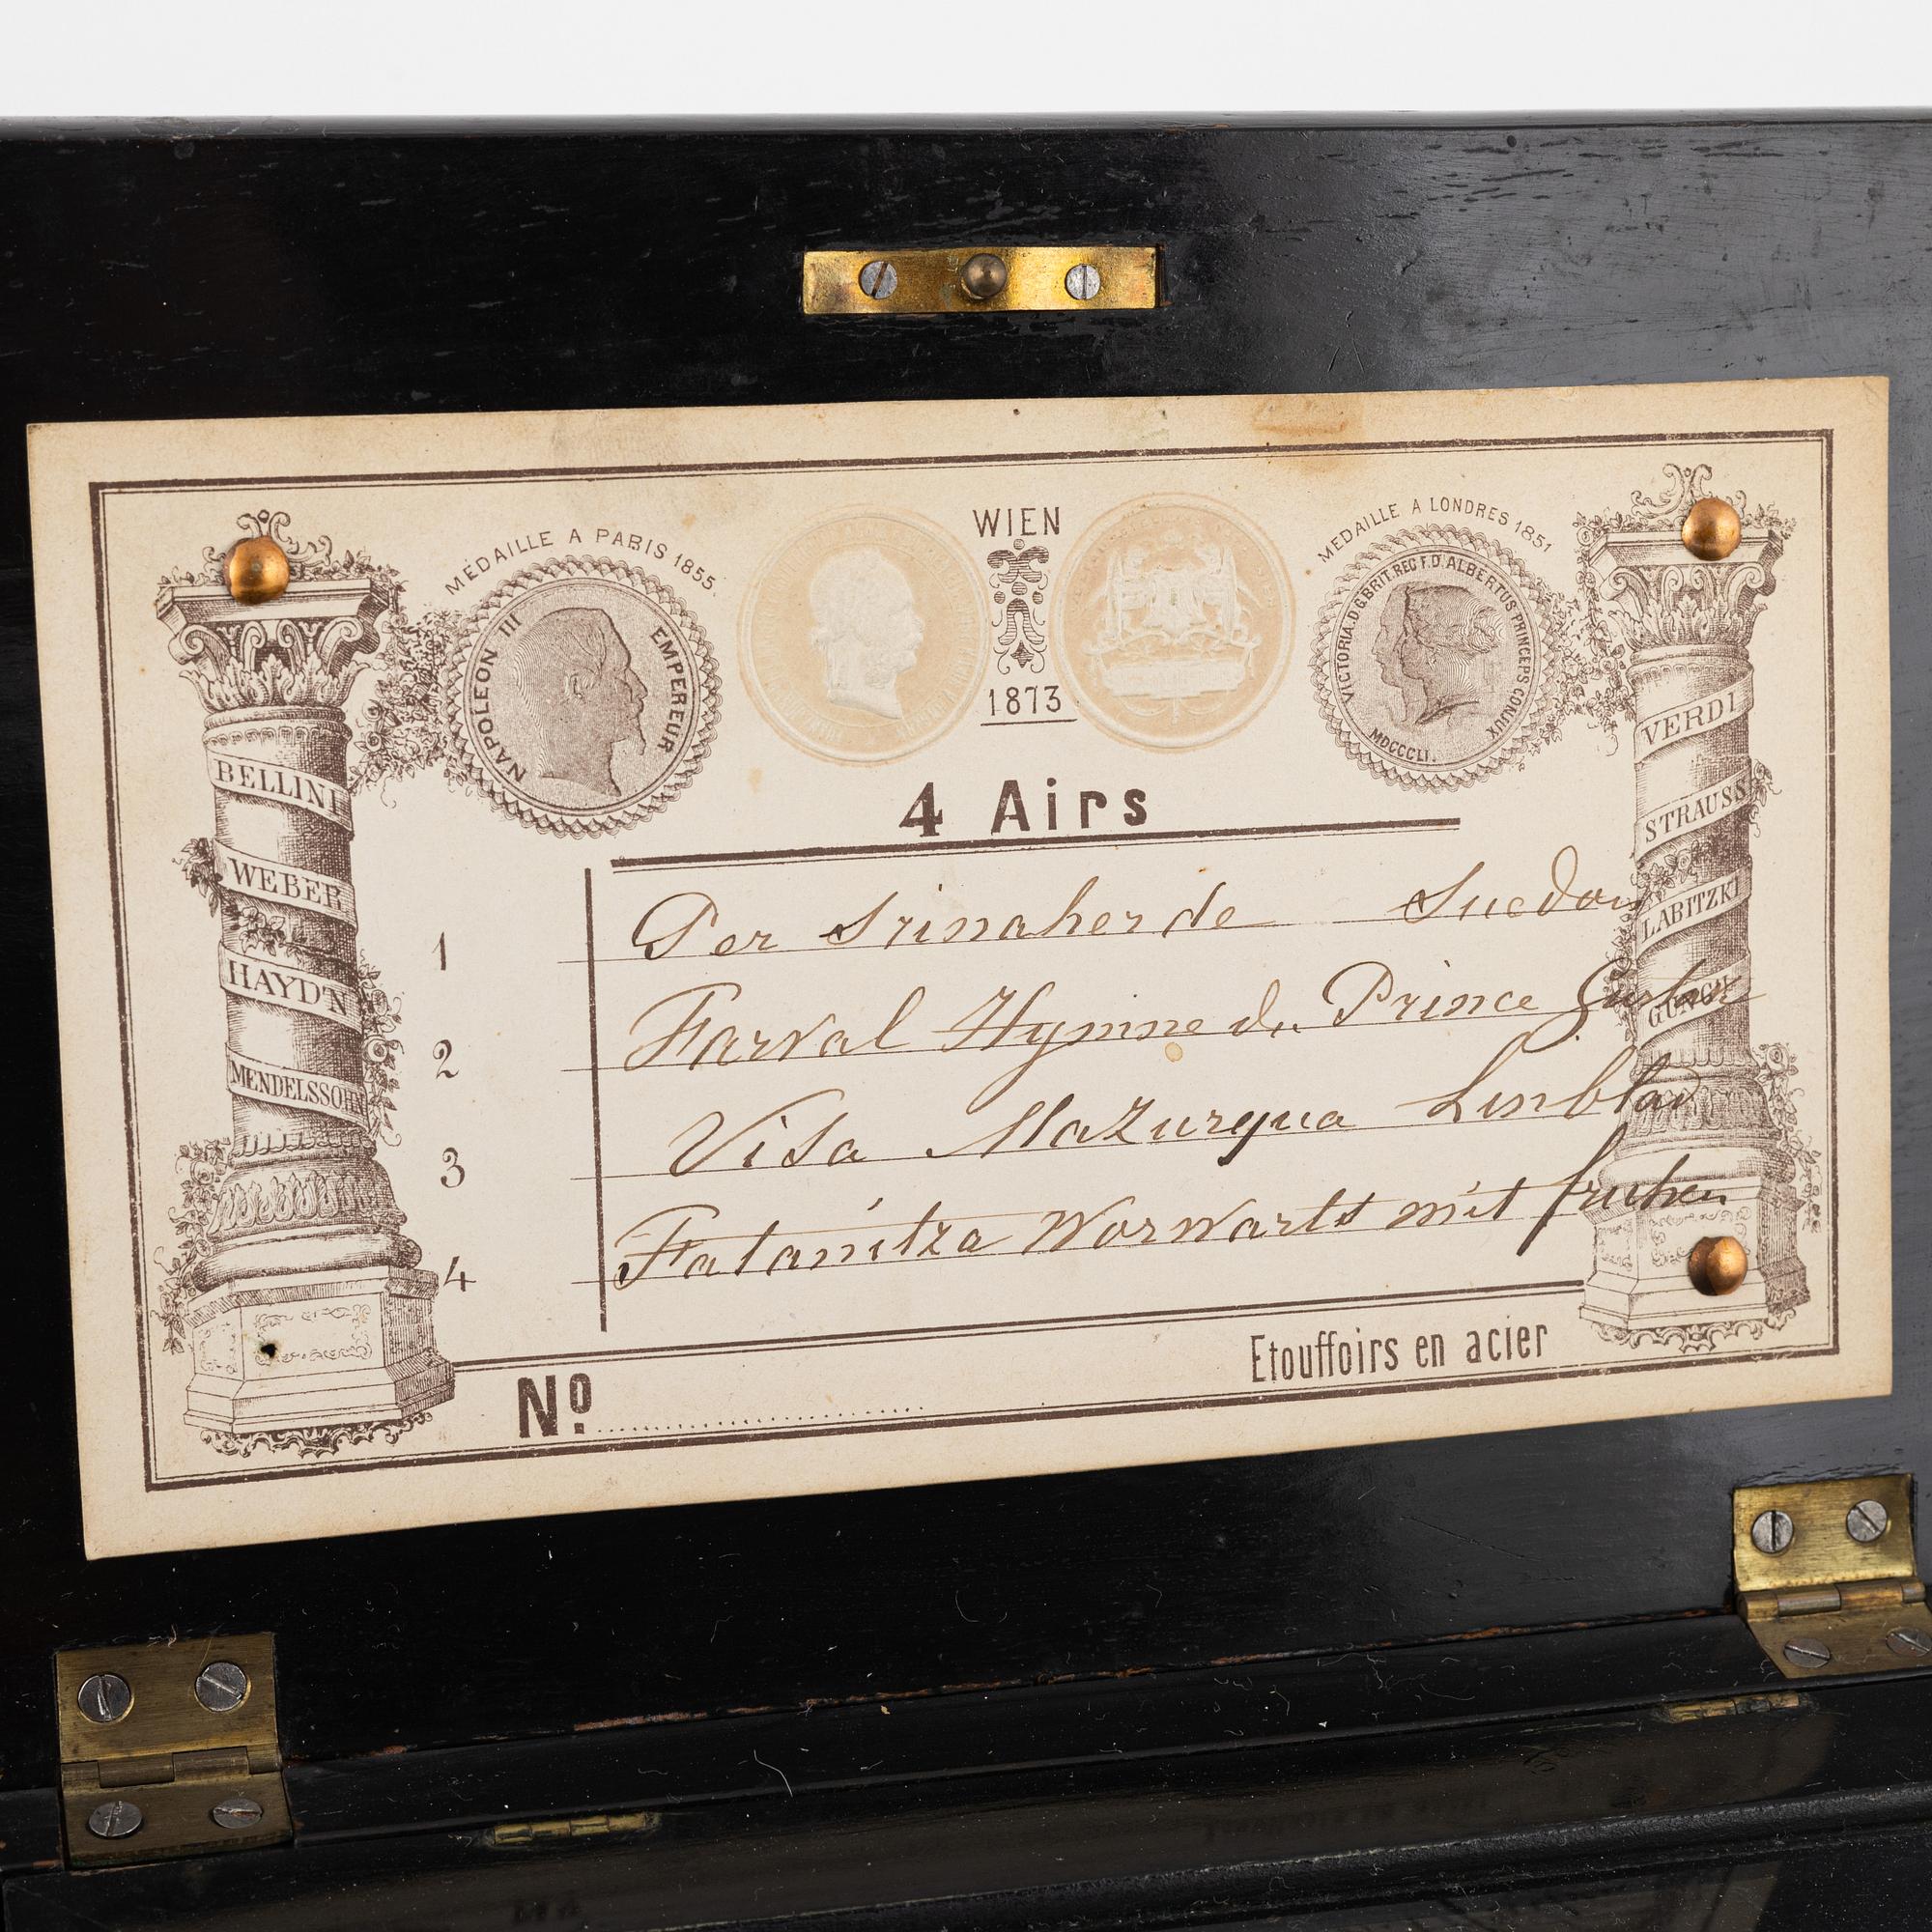 MEDAILLE A PARIS 1855.
NAPOLEON III EMPEREUR
WIEN
1873
MEDAILLE A LONDRES 1851
VICTORIA. D.G. BRIT. REG F.D. ALBERTUS. PRINCEPS CONJUX
MDCCCLI.
BELLINI
WEBER
HAYD'N
MENDELSSOHN
VERDI
STRAUSS
LABITZKI
GUNGL
4 Airs
1 Per Srinaherde Suedois
2 Farval Hymne du Prince Gustav
3 Visa Mazurqua Linblad
4 Fatanitza Worwarts mit frichen
Nº
Etouffoirs en acier